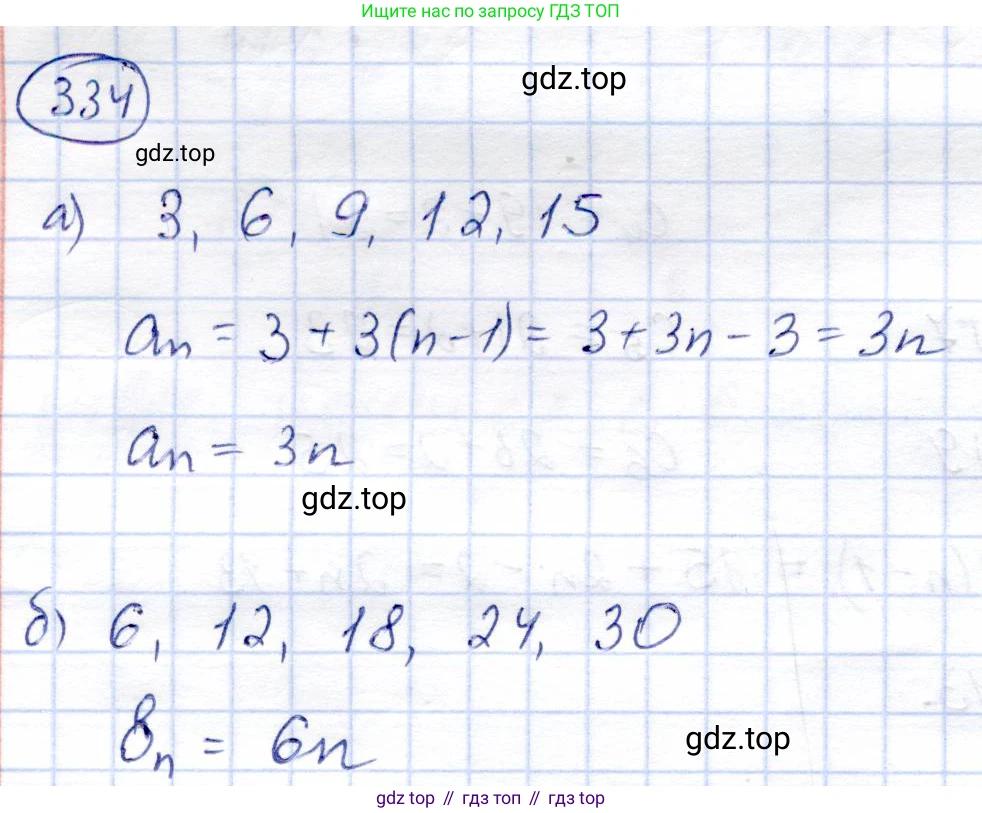 Ищите нас по запросу ГДЗ ТОП
334
gdz.top
gdz.top
а) 3, 6, 9, 12, 15
aₙ = 3 + 3(n-1) = 3 + 3n - 3 = 3n
aₙ = 3n
gdz.top
б) 6, 12, 18, 24, 30
вₙ = 6n
gdz.top
gdz top // гдз топ // gdz top